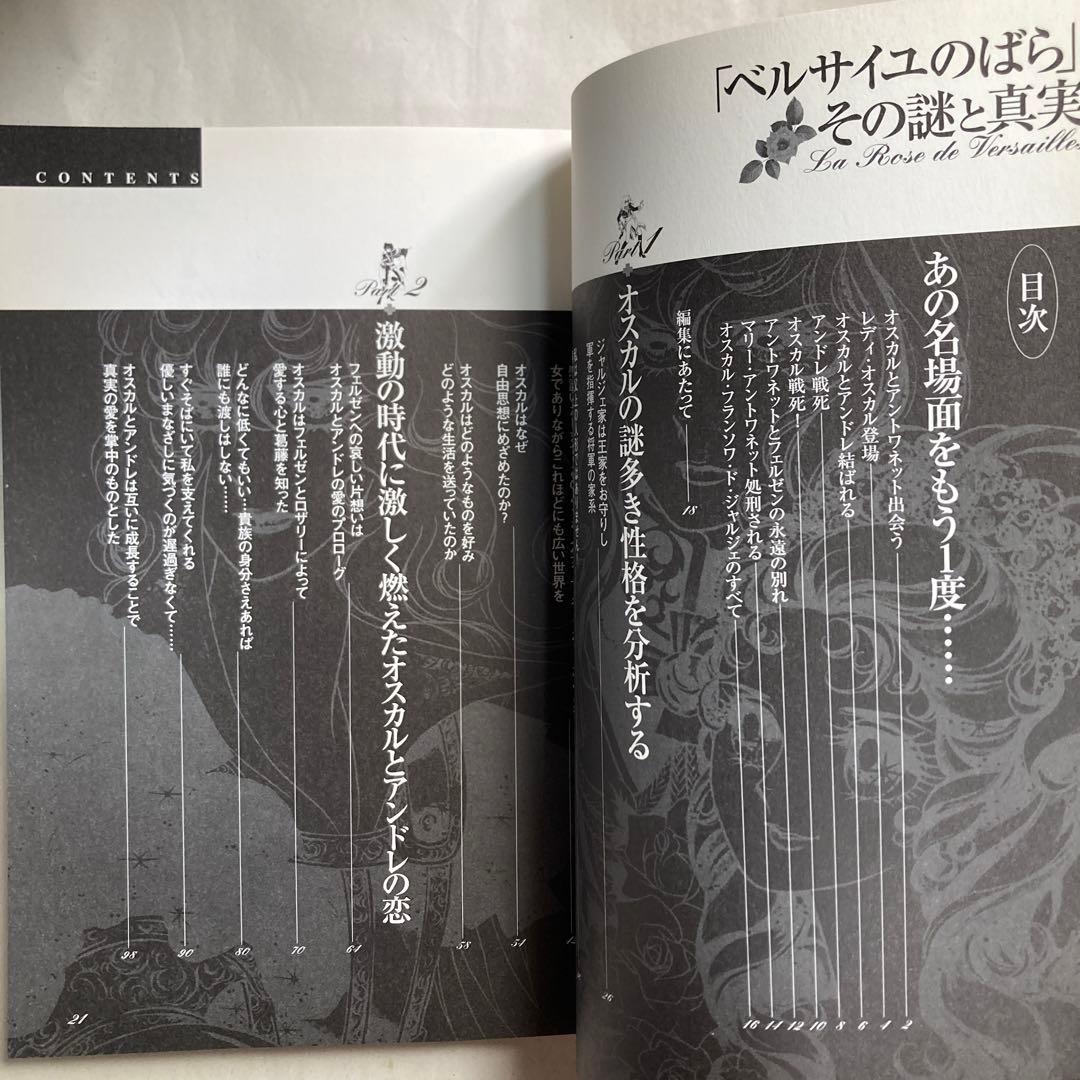 「ベルサイユのばら」
その謎と真実
La Rose de Versailles
目次
あの名場面をもう1度……
オスカルとアントワネット出会う
2
レディ・オスカル登場
4
オスカルとアンドレ結ばれる
6
アンドレ戦死
8
オスカル戦死！
10
アントワネットとフェルゼンの永遠の別れ
12
マリー・アントワネット処刑される
14
オスカル・フランソワ・ド・ジャルジェのすべて
16
編集にあたって
18
Part 1
オスカルの謎多き性格を分析する
ジャルジェ家は王家をお守りし
軍を指揮する将軍の家系
26
女でありながらこれほどにも広い世界を
オスカルはなぜ
自由思想にめざめたのか?
54
オスカルはどのようなものを好み
どのような生活を送っていたのか
58
CONTENTS
Part 2
激動の時代に激しく燃えたオスカルとアンドレの恋
フェルゼンへの哀しい片想いは
オスカルとアンドレの愛のプロローグ
64
オスカルはフェルゼンとロザリーによって
愛する心と葛藤を知った
70
どんなに低くてもいい…貴族の身分さえあれば
誰にも渡しはしない……
80
すぐそばにいて私を支えてくれる
優しいまなざしに気づくのが遅過ぎなくて……
90
オスカルとアンドレは互いに成長することで
真実の愛を掌中のものとした
98
21